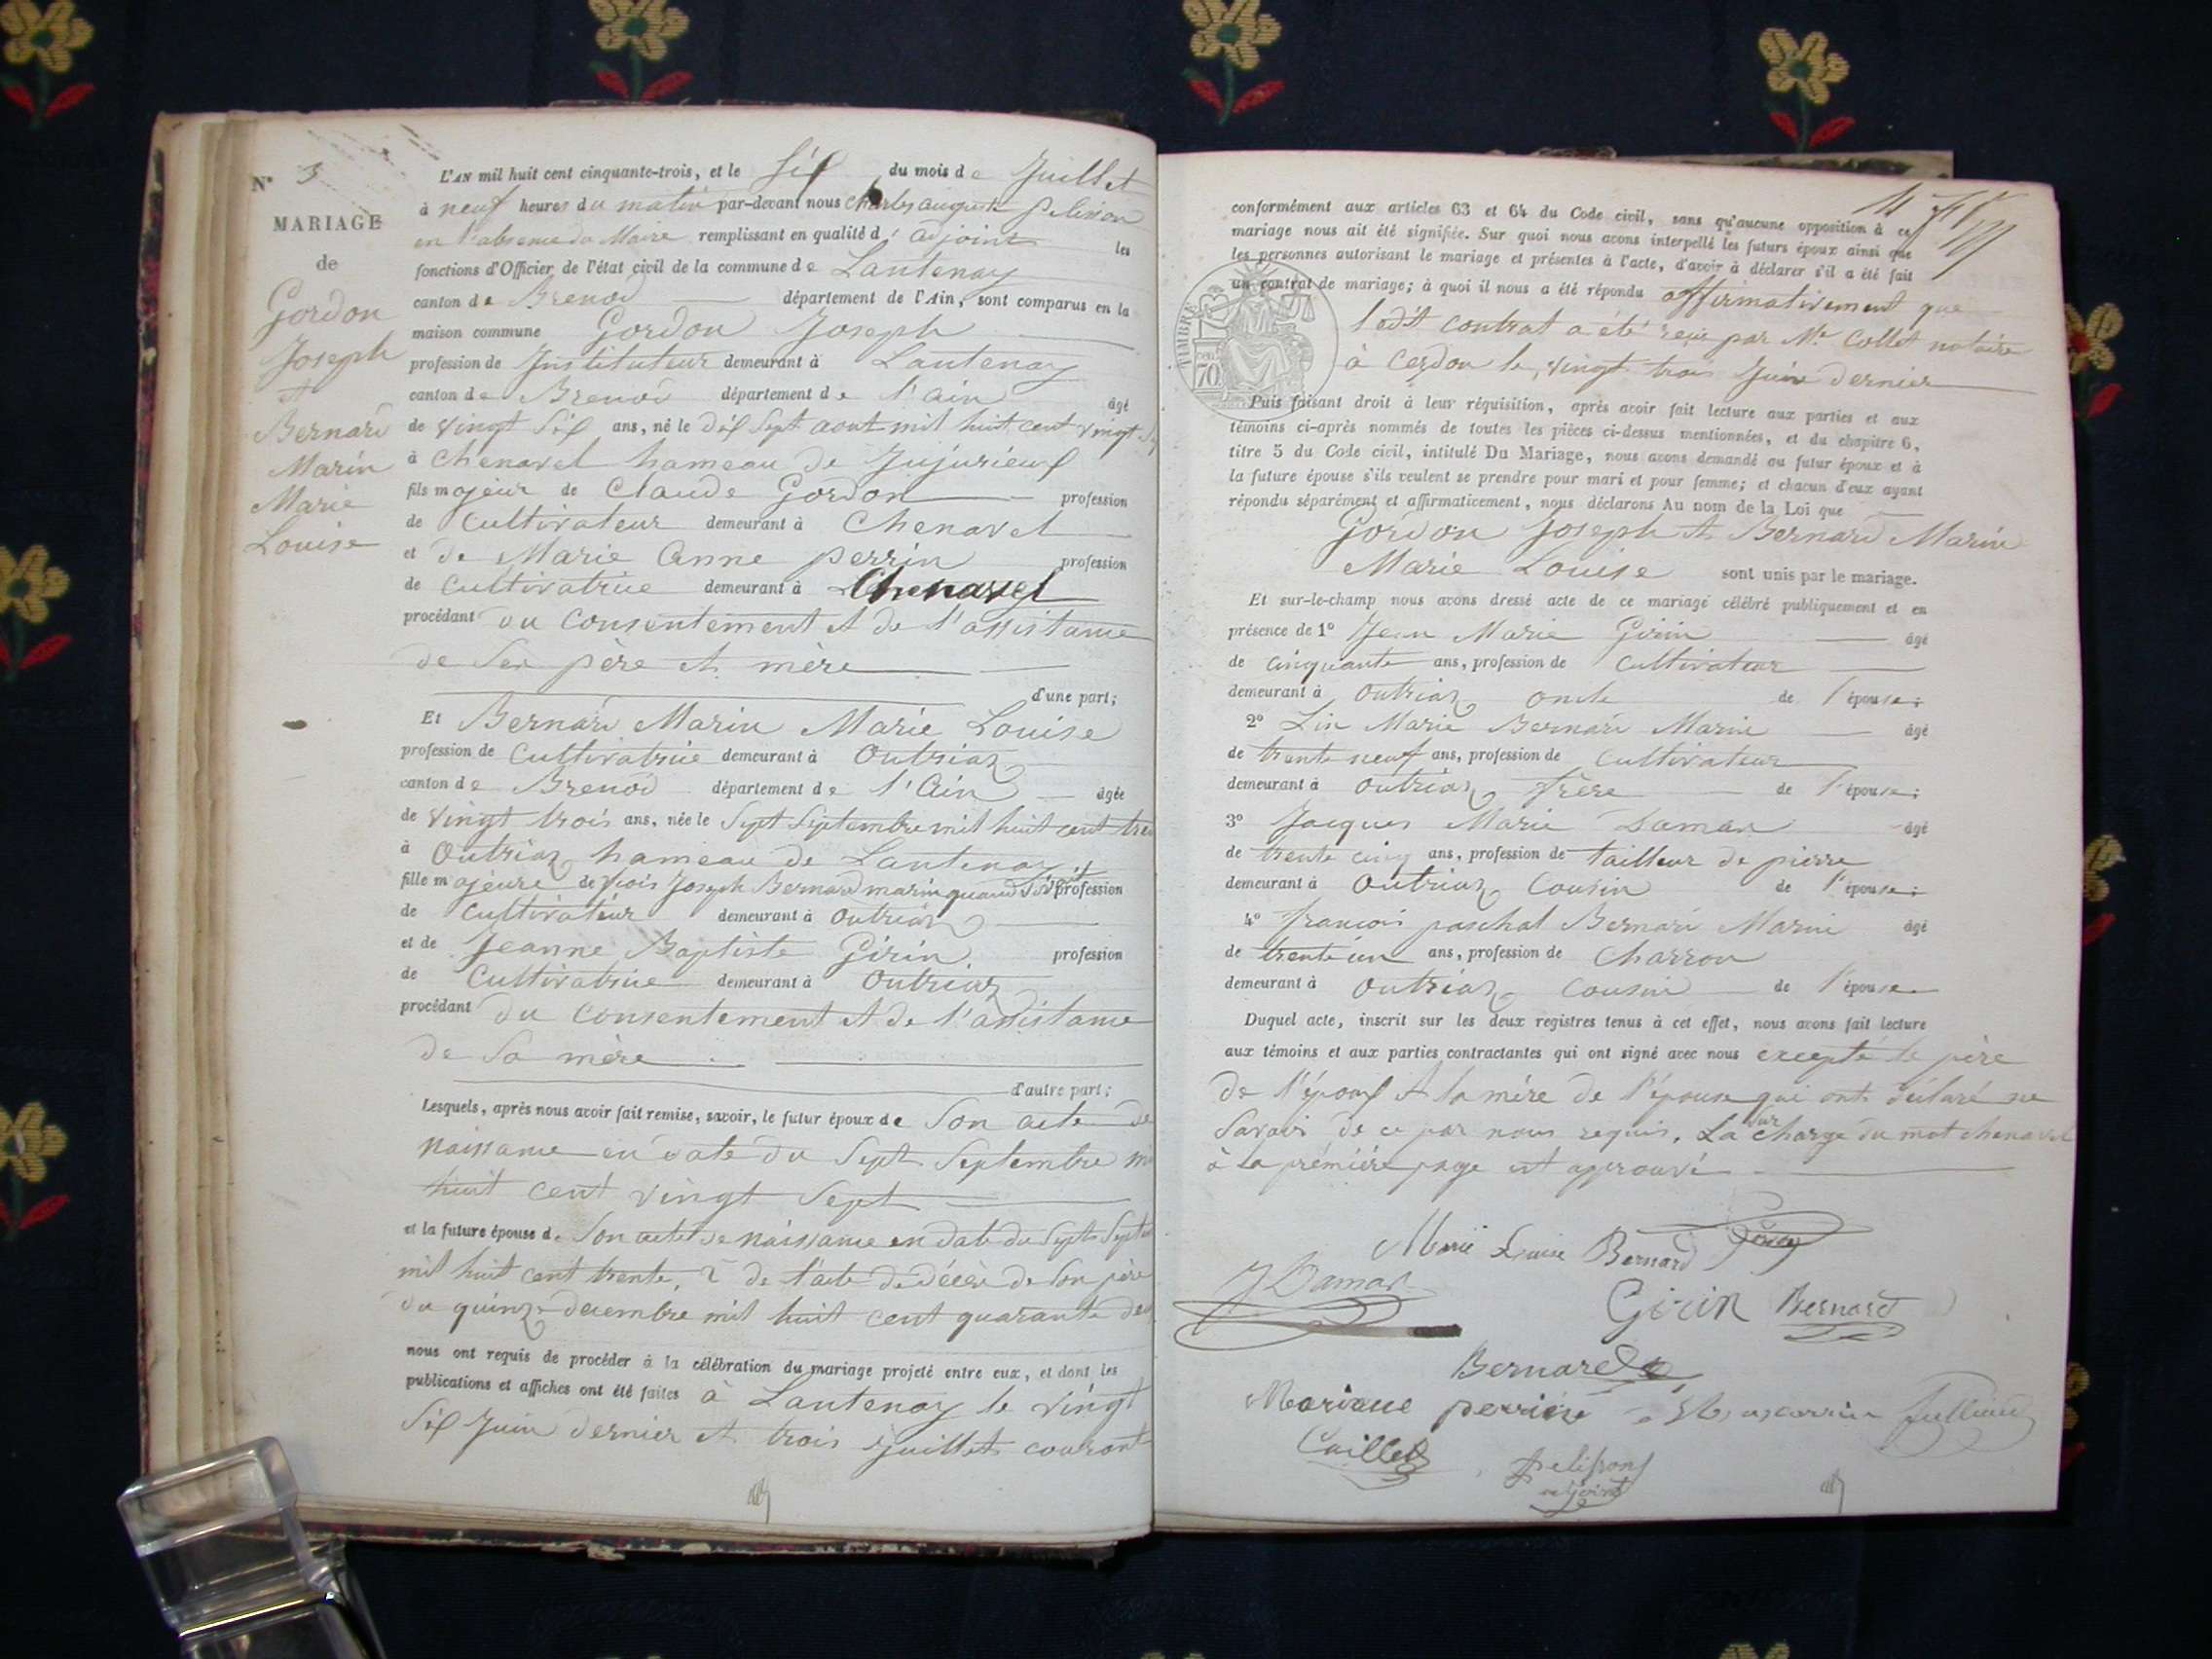 N° 3
MARIAGE
de
Gordon
Joseph
et
Bernard
Marin
Marie
Louise
L'AN mil huit cent cinquante-trois, et le Six du mois de Juillet
à neuf heures du matin par-devant nous Charles auguste pelisson
en l'absence du Maire remplissant en qualité d'adjoint les
fonctions d'Officier de l'état civil de la commune de Lantenay
canton de Brenod département de l'Ain, sont comparus en la
maison commune Gordon Joseph
profession de Instituteur demeurant à Lantenay
canton de Brenod département de l'ain âgé
de vingt Six ans, né le dix Sept aout mil huit cent vingt
à Chenavel hameau de Jujurieux
fils majeur de Claude Gordon profession
de Cultivateur demeurant à Chenavel
et de Marie Anne perrin profession
de Cultivatrice demeurant à Chenavel
procédant du Consentement et de l'assistance
de Ses père et mère
d'une part;
Et Bernard Marin Marie Louise
profession de Cultivatrice demeurant à Outriaz
canton de Brenod département de l'Ain âgée
de vingt trois ans, née le Sept Septembre mil huit cent
à Outriaz hameau de Lantenay
fille majeure de Joseph Bernard marin quand vivait profession
de Cultivateur demeurant à Outriaz
et de Jeanne Baptiste Girin profession
de Cultivatrice demeurant à Outriaz
procédant du Consentement et de l'assistance
de Sa mère
d'autre part;
Lesquels, après nous avoir fait remise, savoir, le futur époux de Son acte de
naissance en date du Sept Septembre
huit cent vingt Sept
et la future épouse de Son acte de naissance en date du Sept
mil huit cent trente, de l'acte de décès de Son père
du quinze decembre mil huit cent quarante
nous ont requis de procéder à la célébration du mariage projeté entre eux, et dont les
publications et affiches ont été faites à Lantenay le vingt
Six Juin dernier et trois Juillet courant
conformément aux articles 63 et 64 du Code civil, sans qu'aucune opposition à ce
mariage nous ait été signifiée. Sur quoi nous avons interpellé les futurs époux ainsi que
les personnes autorisant le mariage et présentes à l'acte, d'avoir à déclarer s'il a été fait
un contrat de mariage; à quoi il nous a été répondu affirmativement que
TIMBRE
70
ledit contrat a été reçu par Me Collet notaire
à Cerdon le vingt trois Juin dernier
Puis faisant droit à leur réquisition, après avoir fait lecture aux parties et aux
témoins ci-après nommés de toutes les pièces ci-dessus mentionnées, et du chapitre 6,
titre 5 du Code civil, intitulé Du Mariage, nous avons demandé au futur époux et à
la future épouse s'ils veulent se prendre pour mari et pour femme; et chacun d'eux ayant
répondu séparément et affirmativement, nous déclarons Au nom de la Loi que
Gordon Joseph et Bernard Marin
Marie Louise sont unis par le mariage.
Et sur-le-champ nous avons dressé acte de ce mariage célébré publiquement et en
présence de 1° Jean Marie Girin âgé
de cinquante ans, profession de Cultivateur
demeurant à Outriaz oncle de l'épouse;
2° Lin Marie Bernard Marin âgé
de trente neuf ans, profession de Cultivateur
demeurant à Outriaz frère de l'épouse;
3° Jacques Marie Damas âgé
de trente cinq ans, profession de tailleur de pierre
demeurant à Outriaz Cousin de l'épouse;
4° françois paschal Bernard Marin âgé
de trente un ans, profession de Charron
demeurant à Outriaz Cousin de l'épouse
Duquel acte, inscrit sur les deux registres tenus à cet effet, nous avons fait lecture
aux témoins et aux parties contractantes qui ont signé avec nous excepté le père
de l'époux et la mère de l'épouse qui ont déclaré ne
Savoir de ce par nous requis. La surcharge du mot chenavel
à la première page est approuvé
Marie Louise Bernard
J Damas
Girin Bernard
Bernard
Mariane perrin
Caillet
pelisson
adjoint